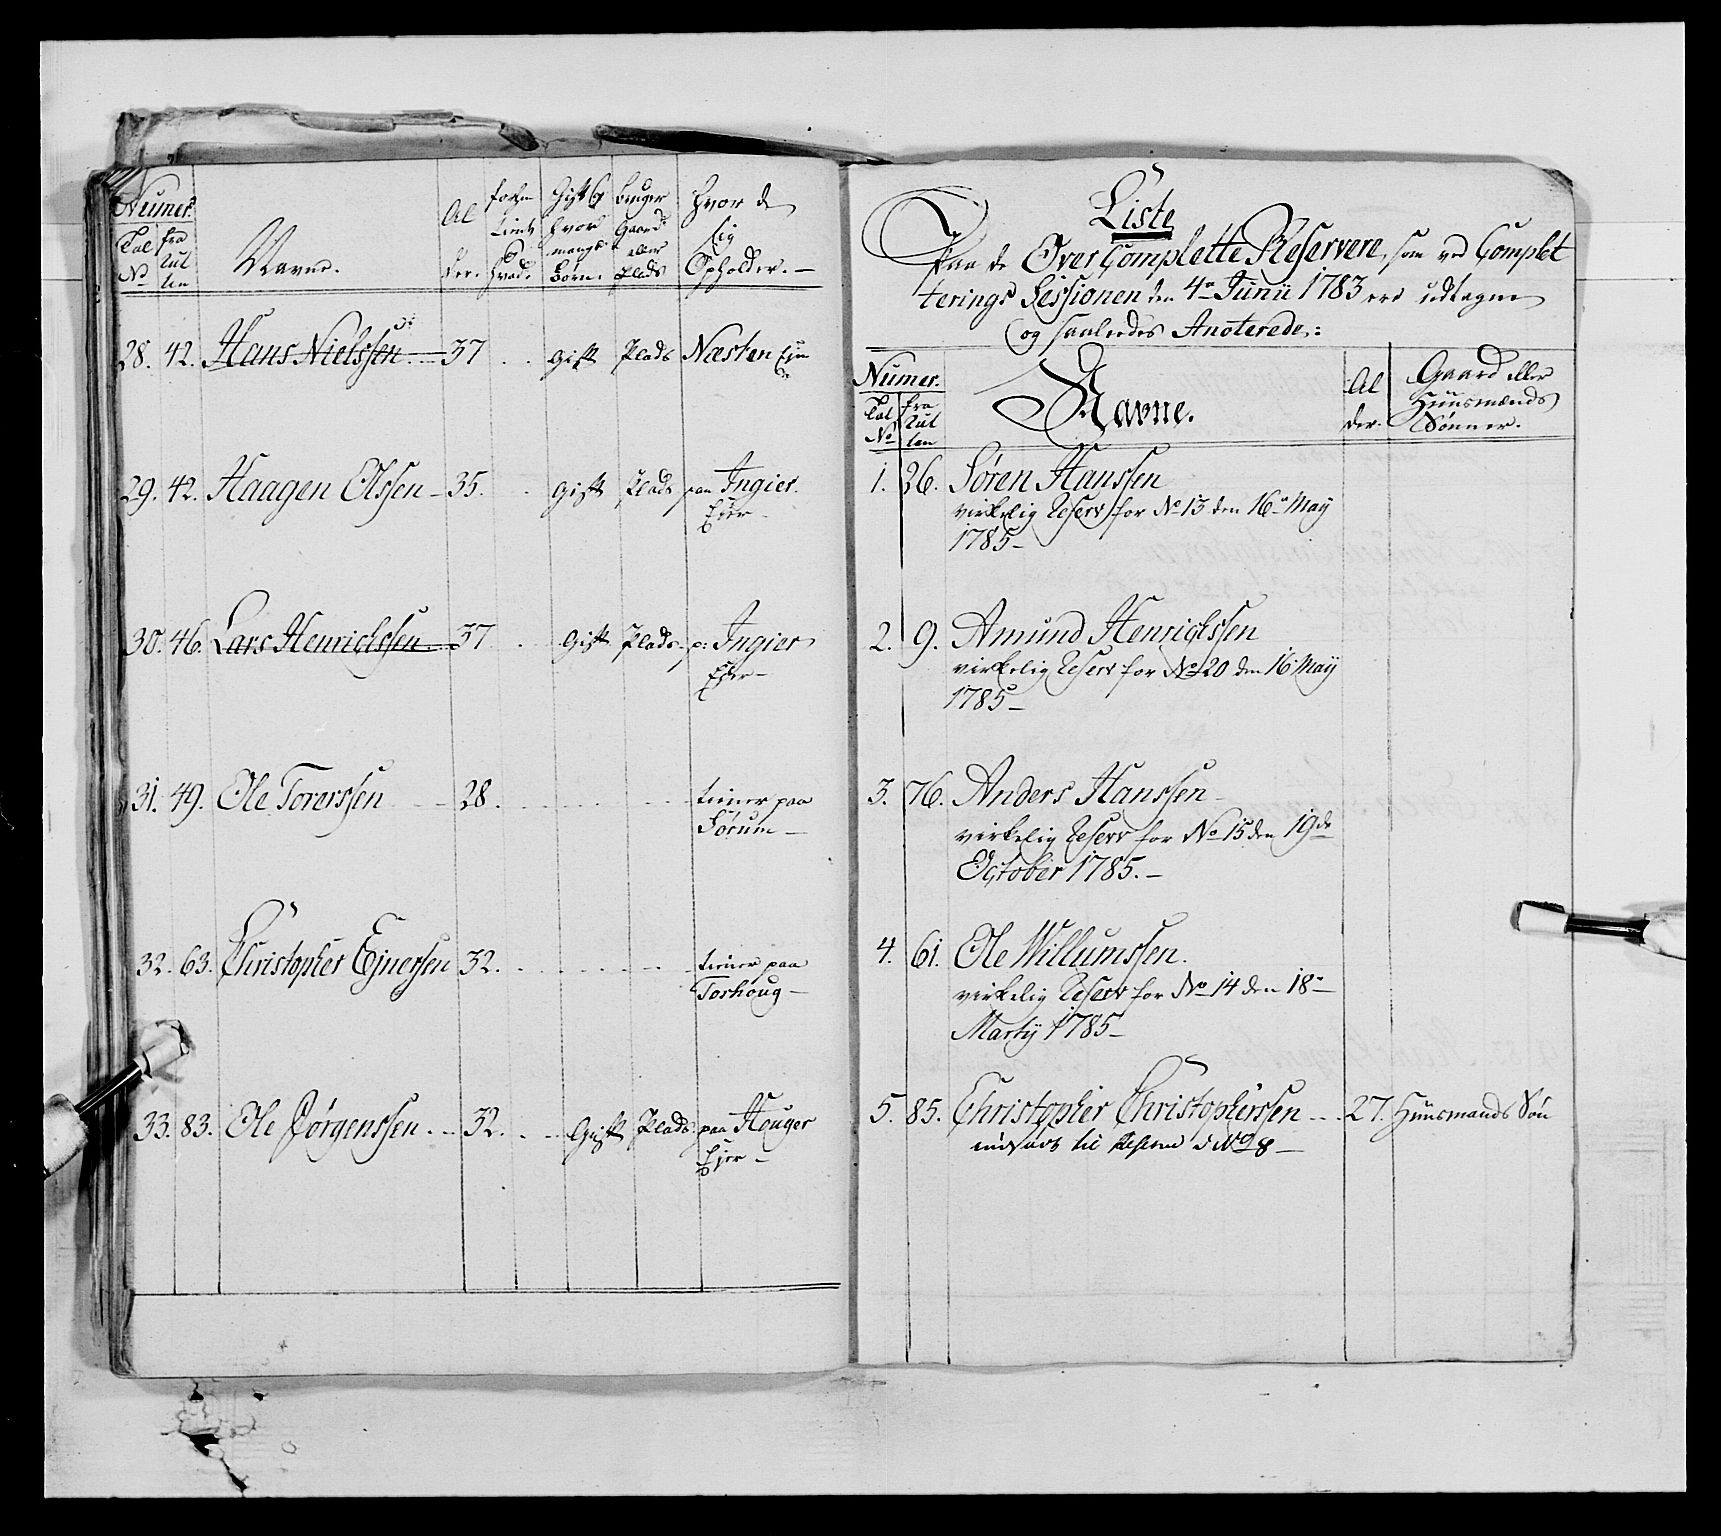 Numer.
Tal No
fra Rul len
Navne.
Al der.
forhen tient & hvad.
Gift & hvor mange Børn.
bruger Gaard eller Plads
hvor de sig Opholder. —
28. 42. Hans Nielssen 37 . . gift Plads Næsten Ejer
29. 42. Haagen Olssen — 35. . . gift Plads paa Ingier.
Ejer —
30. 46. Lars Henrichssen. — 37 . . gift Plads p: Ingier
Ejer —
31. 49. Ole Torerssen 28. tiener paa
Sørum —
32. 63. Christopher Ejnersen 32. tiener paa
Toshoug —
33. 83. Ole Jørgenssen. — 32. Gift Plads paa Houger
Ejer —
Liste
Paa de Over Complette Reservere, som ved Complet
terings Sessionen den 4de Junii 1783 ere udtagne
og saaledes Anoterede:
Numer.
Tal No
fra Rul len
Navne.
Al der.
Gaard eller Huusmænds Sønner.
1. 36. Søren Hanssen
virkelig Reserv for No 13 den 16de May
1785 —
2. 9. Amund Henrichssen
virkelig Reserv for No 20 den 16 Maij
1785 —
3. 76. Anders Hanssen —
virkelig Reserv for No 15 den 19de
October 1785. —
4. 61. Ole Willumssen.
virkelig Reserv for No 14 den 18de
Martij 1785 —
5. 85. Christopher Christopherssen — 27. Huusmands Søn
indsadt til Reserve No 28 —